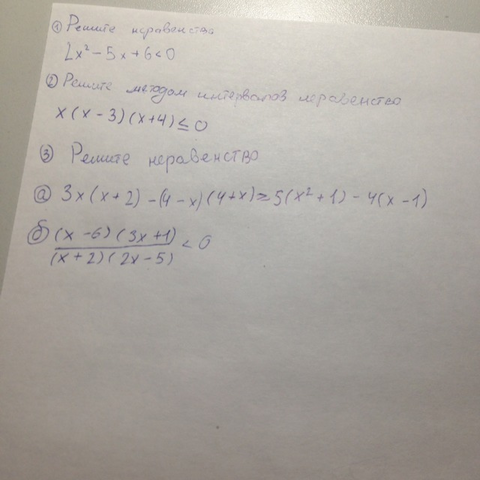 ① Решите неравенство
2x² - 5x + 6 < 0
② Решите методом интервалов неравенство
x(x - 3)(x + 4) ≤ 0
③ Решите неравенство
ⓐ 3x(x + 2) - (4 - x)(4 + x) ≥ 5(x² + 1) - 4(x - 1)
ⓑ (x - 6)(3x + 1) / (x + 2)(2x - 5) < 0